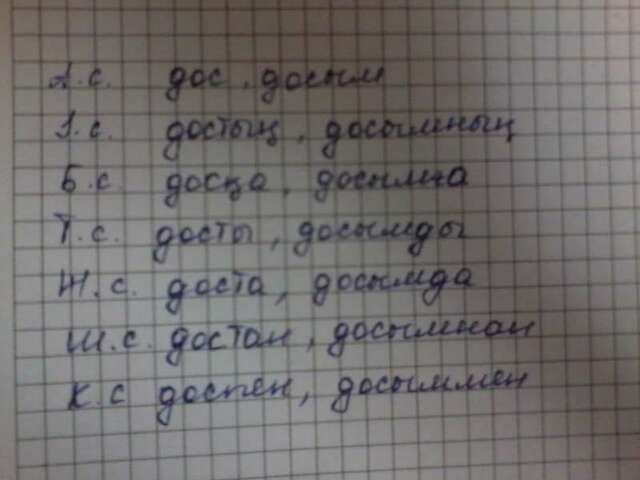 А.с. дос, досым
І.с. достың, досымның
Б.с. досқа, досыма
Т.с. досты, досымды
Ж.с. доста, досымда
Ш.с. достан, досымнан
К.с доспен, досыммен